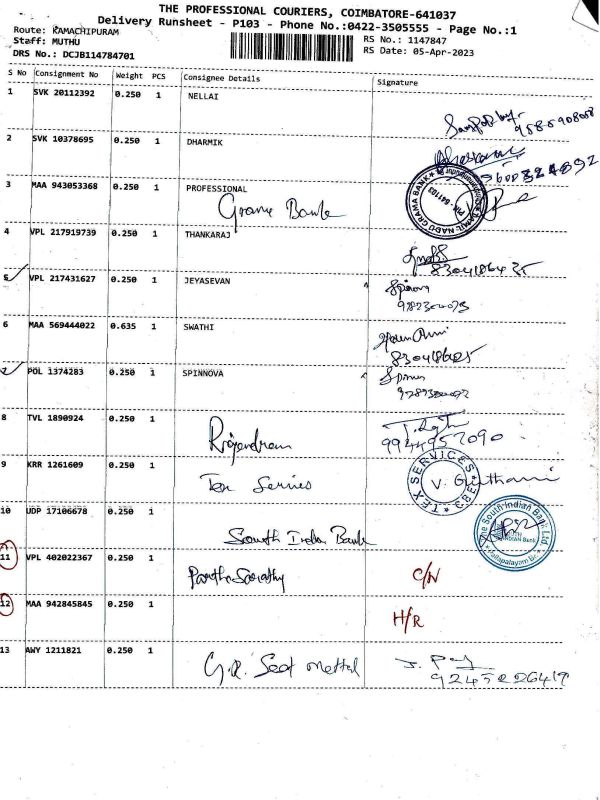 THE PROFESSIONAL COURIERS, COIMBATORE-641037
Delivery Runsheet - P103 - Phone No.:0422-3505555 - Page No.:1
Route: KAMACHIPURAM
Staff: MUTHU
DRS No.: DCJB114784701
RS No.: 1147847
RS Date: 05-Apr-2023
S No Consignment No Weight PCS Consignee Details Signature
1 SVK 20112392 0.250 1 NELLAI
2 SVK 10378695 0.250 1 DHARMIK
3 MAA 943053368 0.250 1 PROFESSIONAL
Grama Bank
TAMIL NADU GRAMA BANK
PIN - 641103
4 VPL 217919739 0.250 1 THANKARAJ
5 VPL 217431627 0.250 1 JEYASEVAN
6 MAA 569444022 0.635 1 SWATHI
7 POL 1374283 0.250 1 SPINNOVA
8 TVL 1890924 0.250 1 Rajendran
9944957090
9 KRR 1261609 0.250 1 Tex Servies
TEX SERVICES
10 UDP 17106678 0.250 1 South India Bank
The South Indian Bank Ltd.
11 VPL 402022367 0.250 1 Partha Sarathy C/N
12 MAA 942845845 0.250 1 H/R
13 AWY 1211821 0.250 1 G.R. Seat Mettal